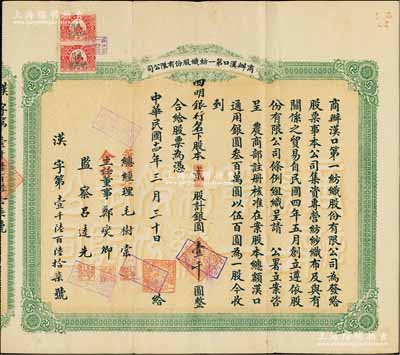 商辦漢口第一紡織股份有限公司
商辦漢口第一紡織股份有限公司為發給
股票事本公司集資專營紡紗織布及與有
關係之貿易自民國四年五月創立遵依股
份有限公司條例組織呈請 公署立案咨
呈 農商部註冊核准在案股本總額漢口
通用銀圓叁百萬圓以伍百圓為一股今收
到
四明銀行名下股本貳股計銀圓壹仟圓整
合給股票為憑
中華民國 年三月三十日 給
總經理 毛樹棠
主任董事
監察 呂逵先
漢字第壹千陸百陸拾柒號